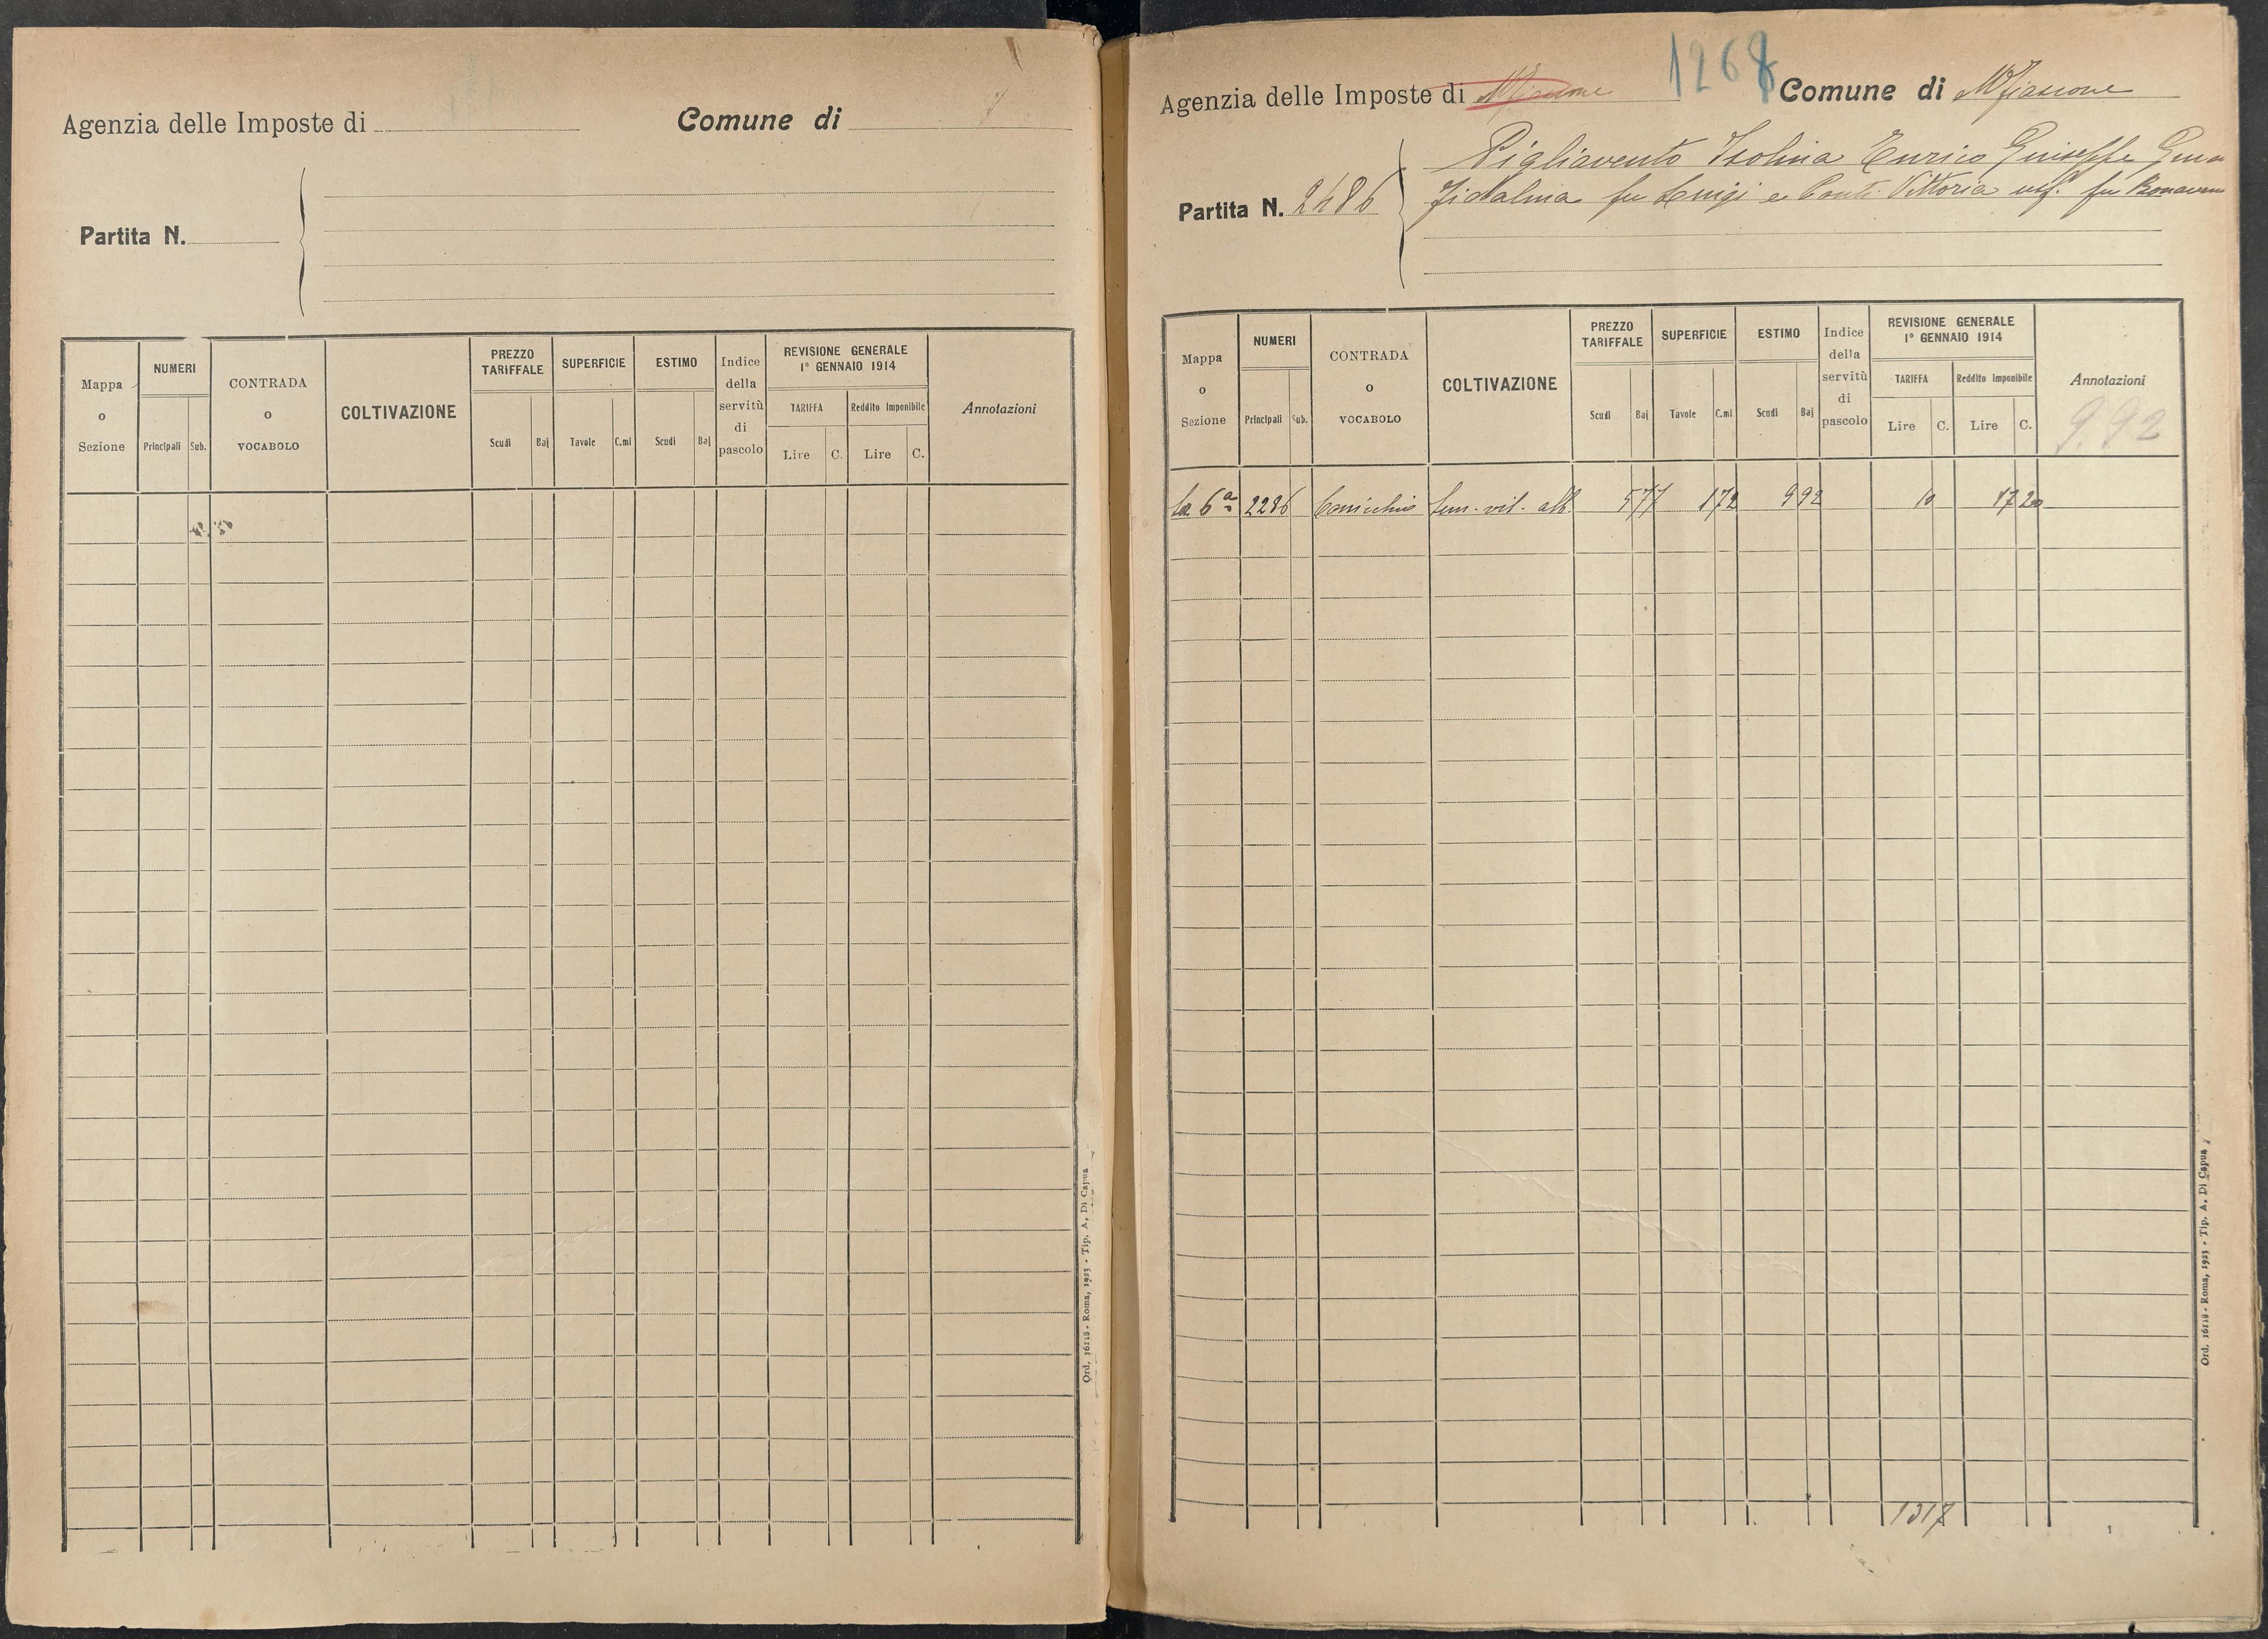 Agenzia delle Imposte di
Comune di
Partita N.
Mappa o Sezione
NUMERI
Principali
Sub.
CONTRADA o VOCABOLO
COLTIVAZIONE
PREZZO TARIFFALE
Scudi
Baj
SUPERFICIE
Tavole
C.mi
ESTIMO
Scudi
Baj
Indice della servitù di pascolo
REVISIONE GENERALE
1° GENNAIO 1914
TARIFFA
Reddito Imponibile
Lire
C.
Lire
C.
Annotazioni
Ord. 16118 - Roma, 1923 - Tip. A. Di Capua
1268
Agenzia delle Imposte di Mfiascone
Comune di Mfiascone
Pigliavento Isolina Enrico Giuseppe
Partita N. 2486
Fidalma fu Luigi e Conti Vittoria usf. fu
Mappa o Sezione
NUMERI
Principali
Sub.
CONTRADA o VOCABOLO
COLTIVAZIONE
PREZZO TARIFFALE
Scudi
Baj
SUPERFICIE
Tavole
C.mi
ESTIMO
Scudi
Baj
Indice della servitù di pascolo
REVISIONE GENERALE
1° GENNAIO 1914
TARIFFA
Reddito Imponibile
Lire
C.
Lire
C.
Annotazioni
9.92
6a 2286 Cornicchio Sem. vit. alb. 577 172 992 10 17 20
1317
Ord. 16118 - Roma, 1923 - Tip. A. Di Capua